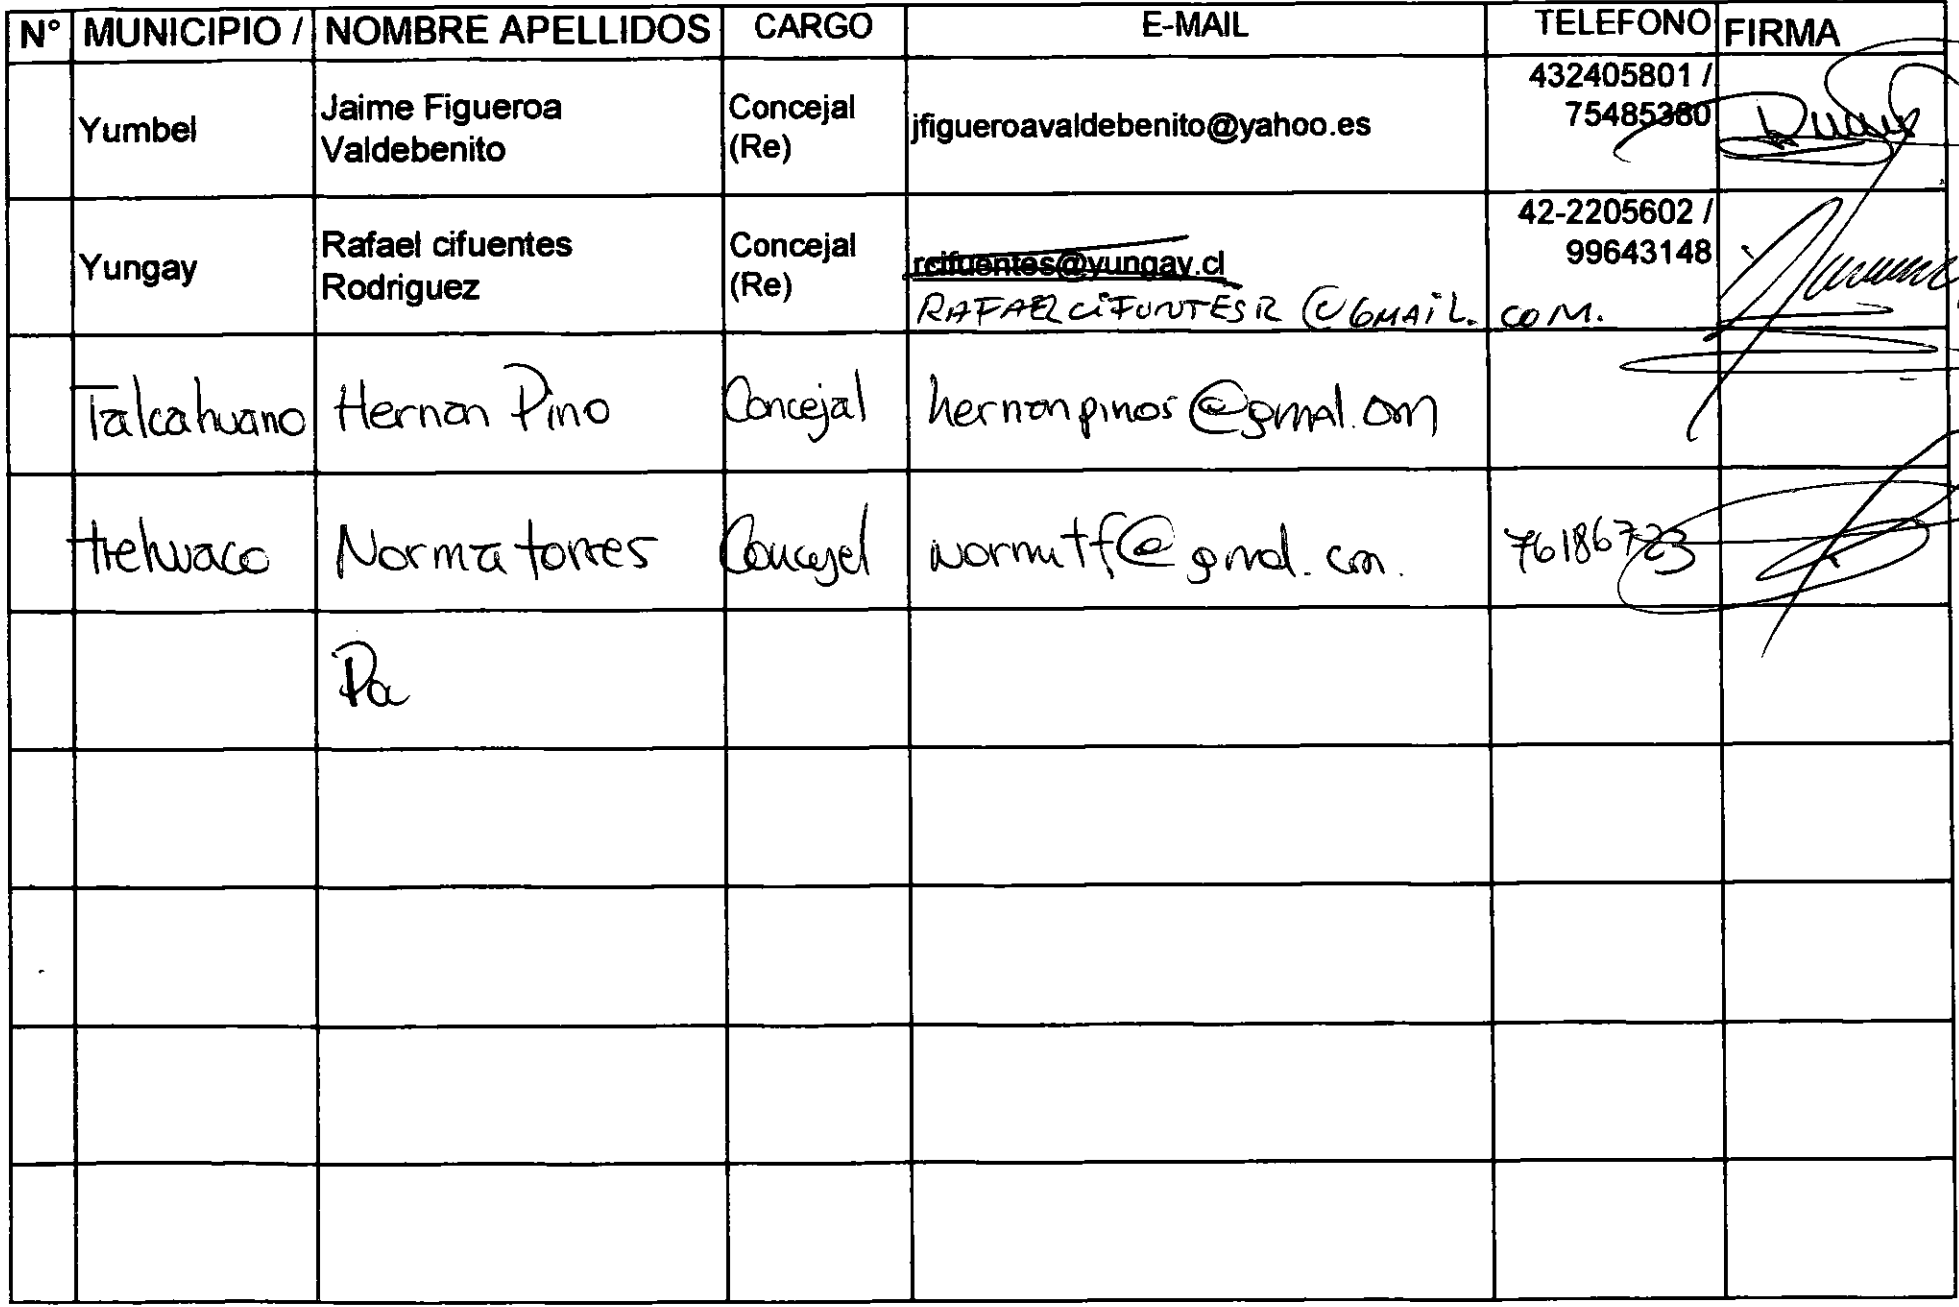 N° MUNICIPIO / NOMBRE APELLIDOS CARGO E-MAIL TELEFONO FIRMA
Yumbel Jaime Figueroa Valdebenito Concejal (Re) jfigueroavaldebenito@yahoo.es 432405801 / 75485380
Yungay Rafael cifuentes Rodriguez Concejal (Re) rcifuentes@yungay.cl 42-2205602 / 99643148
RAFAELCiFUNTESR @GMAiL. COM.
Talcahuano Hernan Pino Concejal hernanpinos@gmal.om
trehuaco Norma torres Concejel @gmal.com. 76186723
Pa